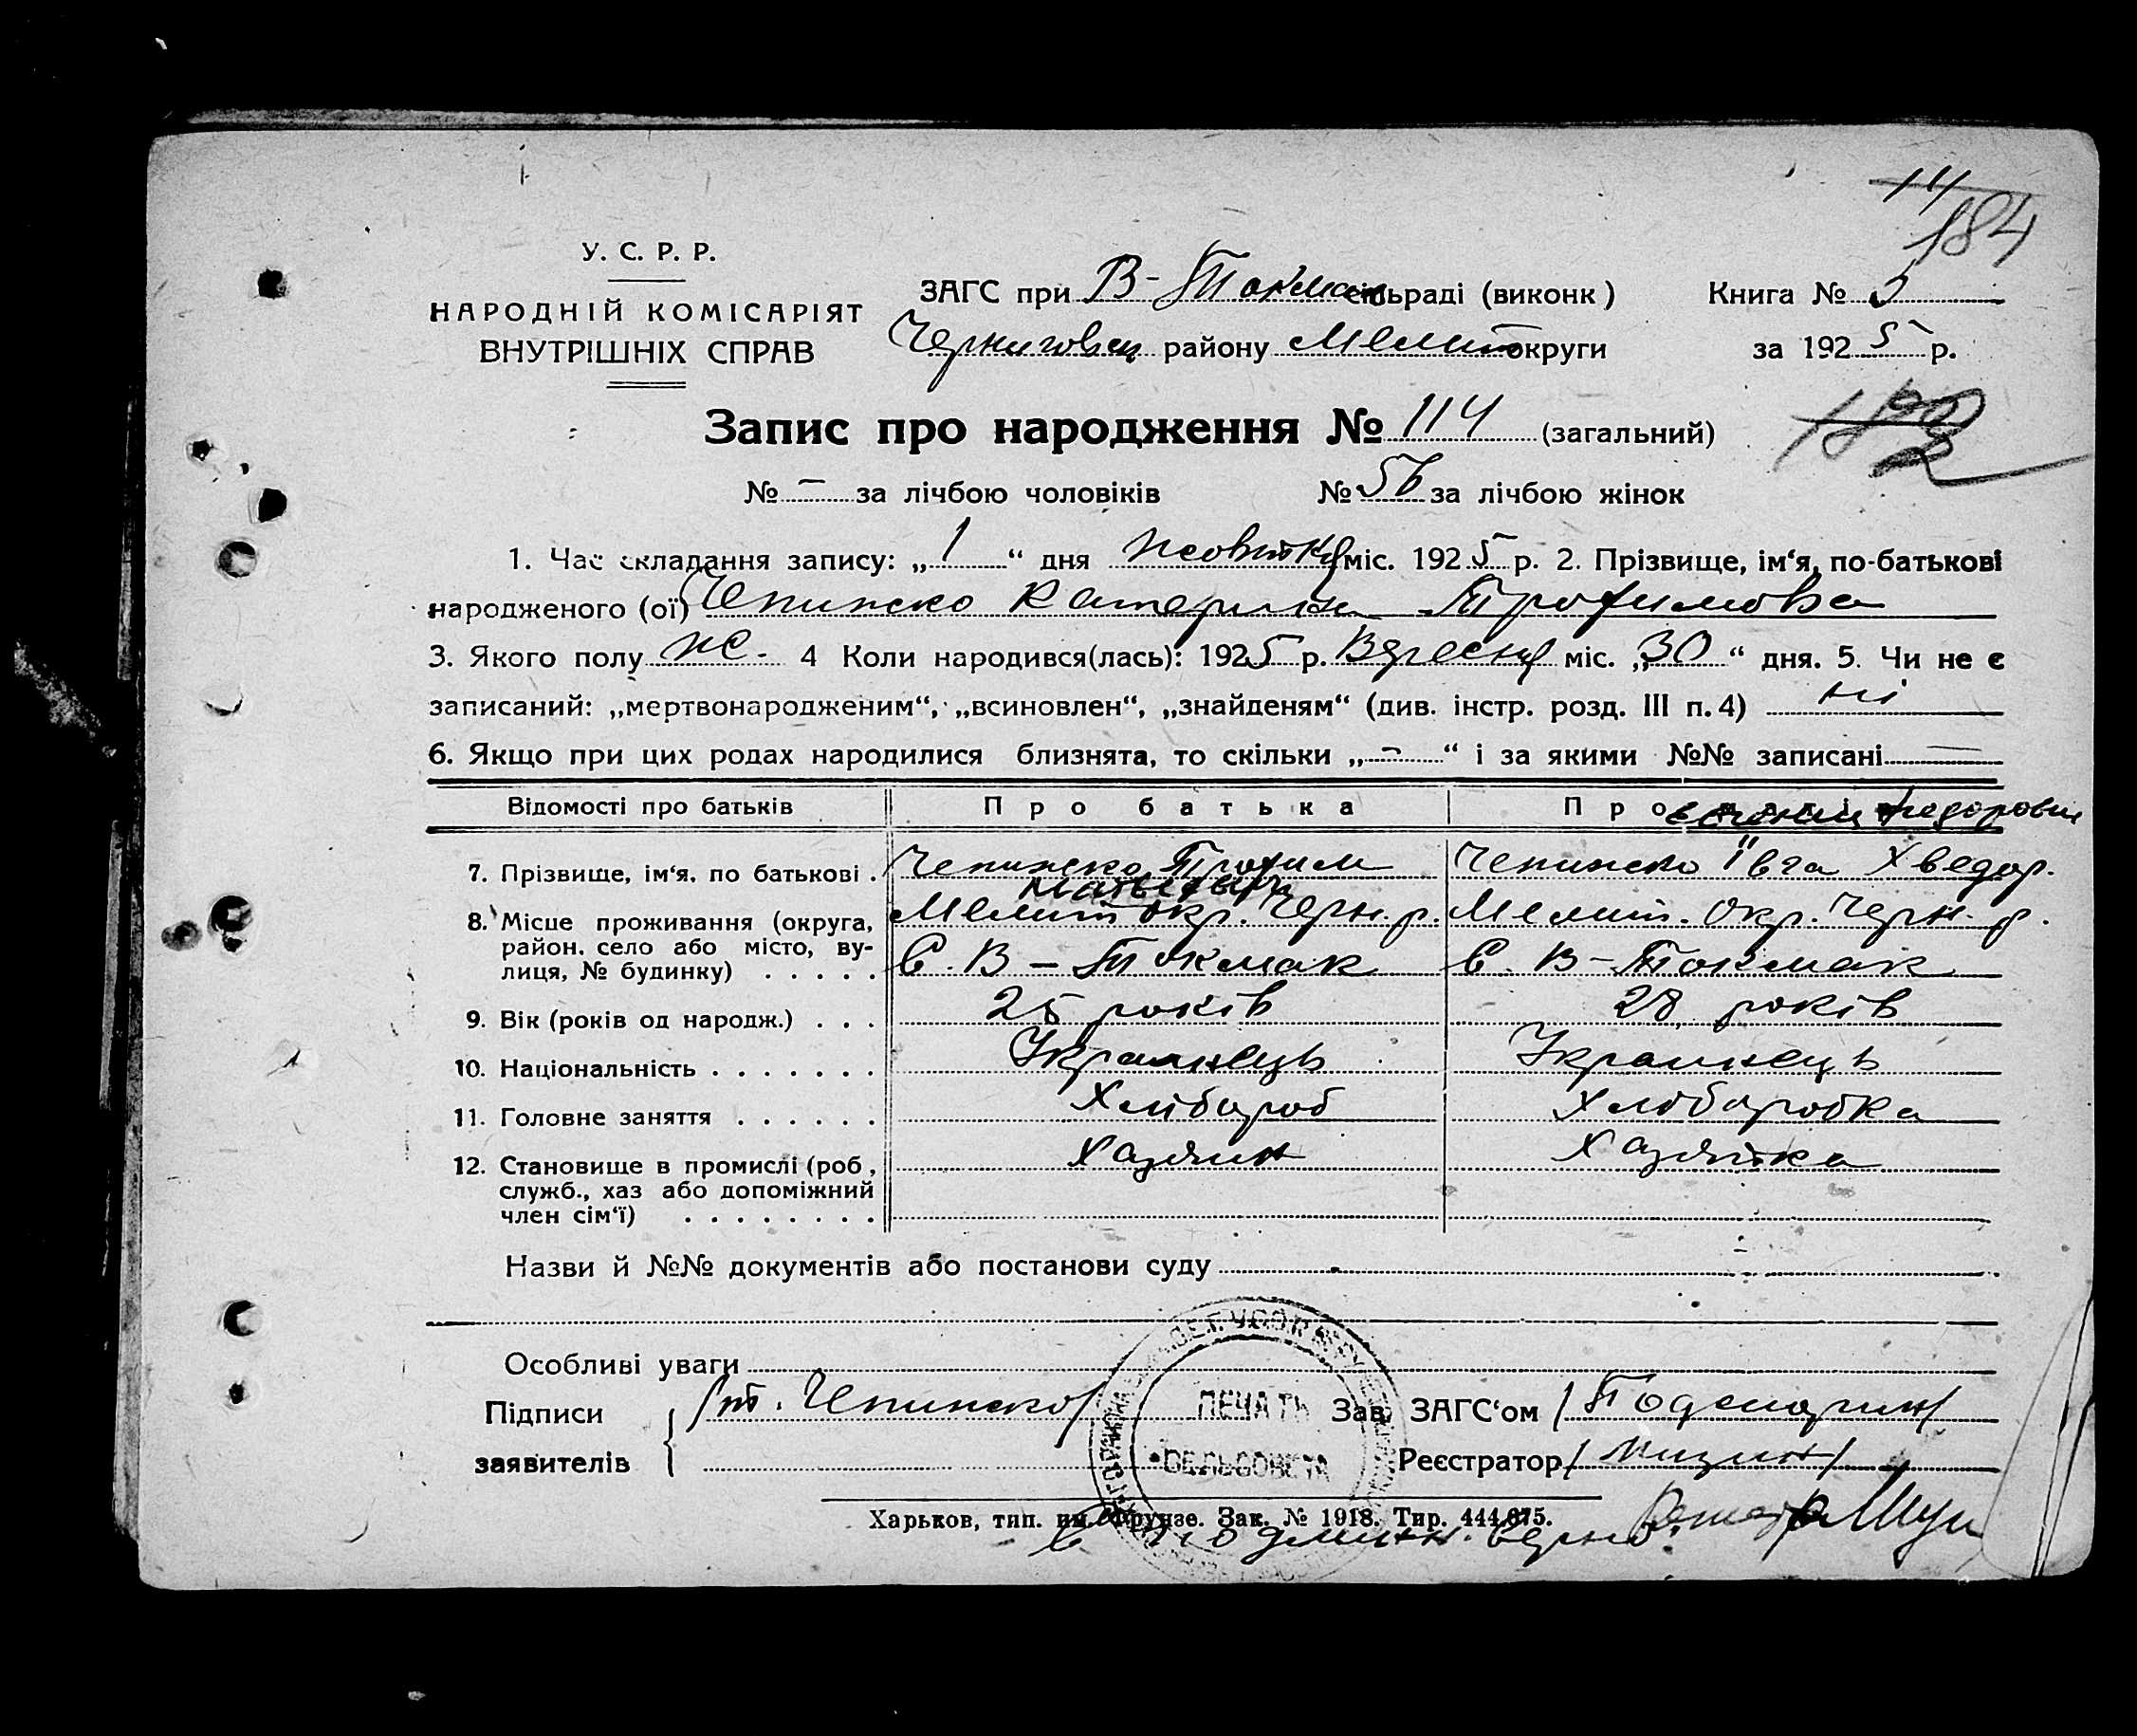 114
184
У. С. Р. Р.
НАРОДНІЙ КОМІСАРІЯТ
ВНУТРІШНІХ СПРАВ
ЗАГС при В-Токмак сільраді (виконк)
Черниговськ району Мелит округи
Книга №
за 1925 р.
Запис про народження № 114 (загальний)
№ – за лічбою чоловіків № 56 за лічбою жінок
1. Час складання запису: „1“ дня жовтня міс. 1925 р. 2. Прізвище, ім‘я, по-батькові
народженого (ої) Чепижко Катерина Трофимовна
3. Якого полу ж. 4 Коли народився(лась): 1925 р. Вересня міс. „30“ дня. 5. Чи не є
записаний: „мертвонародженим“, „всиновлен“, „знайденям“ (див. інстр. розд. III п. 4) ні
6. Якщо при цих родах народилися близнята, то скільки „–“ і за якими №№ записані —
Відомості про батьків Про батька Про матір
Федоровн
7. Прізвище, ім‘я, по батькові . Чепижко Трофим Чепижко Ївга Хведор.
Матвеевич
8. Місце проживання (округа, Мелит окр. Черн. р. Мелит. Окр. Черн. р.
район, село або місто, ву-
лиця, № будинку) . . . . . С. В – Токмак С. В – Токмак
9. Вік (років од народж.) . . . 25 років 28 років
10. Національність . . . . . . . Украинець Украинець
11. Головне заняття . . . . . . Хлібороб Хліборобка
12. Становище в промислі (роб, Хазяин Хазяйка
служб., хаз або допоміжний
член сім‘ї) . . . . . . . .
Назви й №№ документів або постанови суду
Особливі уваги
Підписи /т. Чепижко/ Зав. ЗАГС‘ом
заявителів Реєстратор
ПЕЧАТЬ
СЕЛЬСОВЕТА
Харьков, тип. им. Фрунзе. Зак. № 1918. Тир. 444,675.
С подлинн. верно.